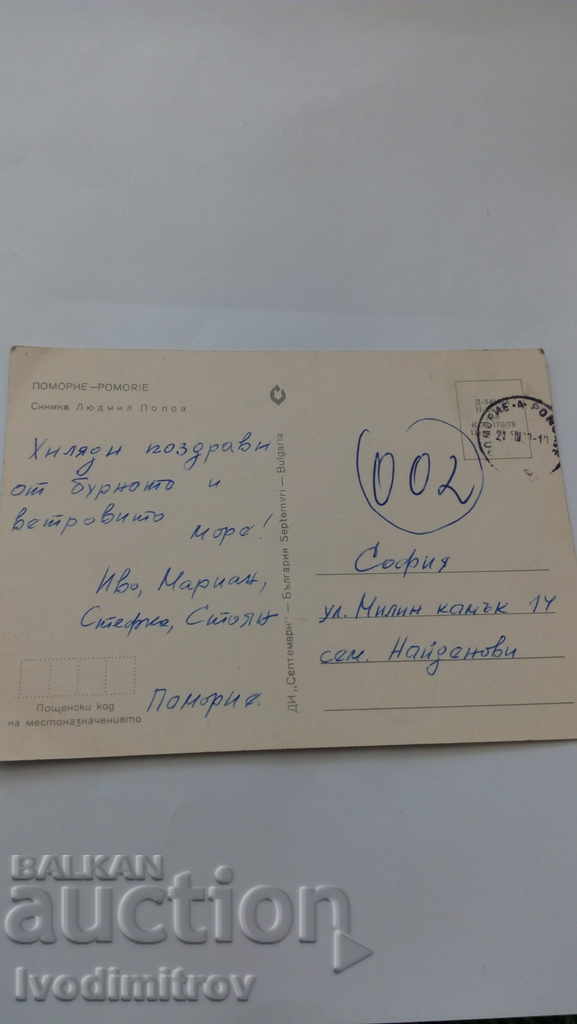 ПОМОРИЕ—POMORIE
Снимка Людмил Попов
Хиляди поздрави
от бурното и
ветровито море!
Иво, Мариан,
Стефка, Стоян
Поморие.
Пощенски код
на местоназначението
ДИ „Септември" — България Septemvri — Bulgaria
ПОМОРИЕ-А POMORIE
002
София
ул. Милин камък 14
сем. Найденови
BALKAN
auction
Ivodimitrov